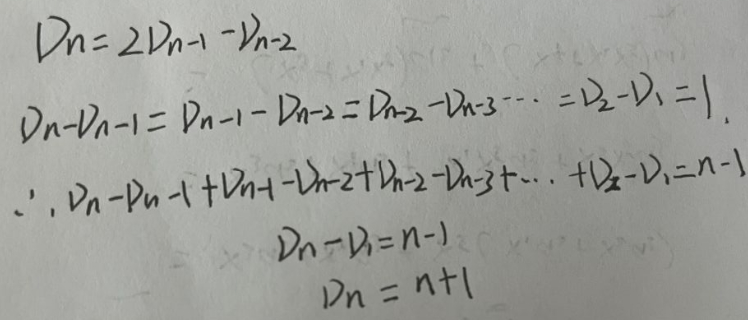 Dn = 2Dn-1 - Dn-2
Dn - Dn-1 = Dn-1 - Dn-2 = Dn-2 - Dn-3 ... = D2 - D1 = 1.
∴ Dn - Dn-1 + Dn-1 - Dn-2 + Dn-2 - Dn-3 + ... + D2 - D1 = n-1
Dn - D1 = n-1
Dn = n+1